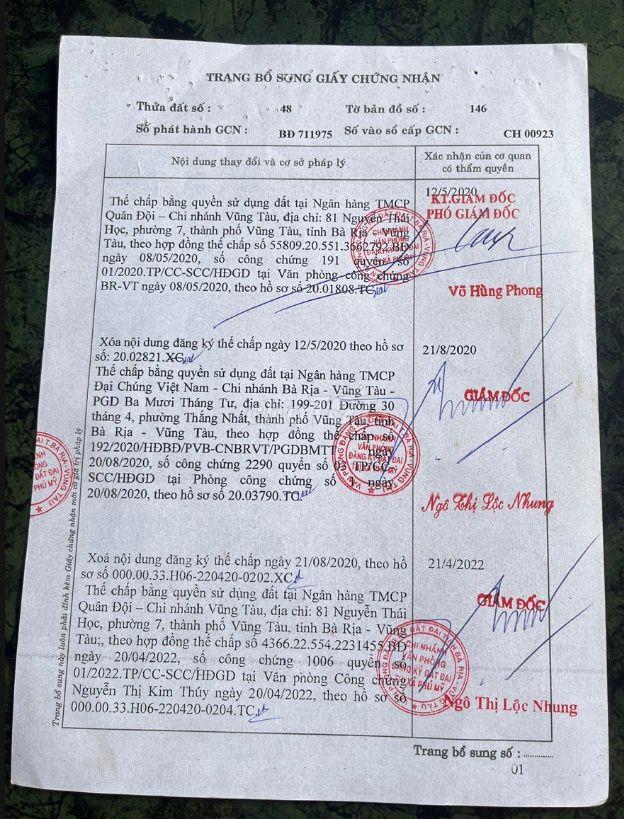 TRANG BỔ SUNG GIẤY CHỨNG NHẬN
Thửa đất số : 48 Tờ bản đồ số : 146
Số phát hành GCN : BĐ 711975 Số vào sổ cấp GCN : CH 00923
Nội dung thay đổi và cơ sở pháp lý
Xác nhận của cơ quan
có thẩm quyền
Thế chấp bằng quyền sử dụng đất tại Ngân hàng TMCP
Quân Đội – Chi nhánh Vũng Tàu, địa chỉ: 81 Nguyễn Thái
Học, phường 7, thành phố Vũng Tàu, tỉnh Bà Rịa – Vũng
Tàu, theo hợp đồng thế chấp số 55809.20.551.3662792.BĐ
ngày 08/05/2020, số công chứng 191 quyển số
01/2020.TP/CC-SCC/HĐGD tại Văn phòng công chứng
BR-VT ngày 08/05/2020, theo hồ sơ số 20.01808.TC
12/5/2020
KT.GIÁM ĐỐC
PHÓ GIÁM ĐỐC
Võ Hùng Phong
Xóa nội dung đăng ký thế chấp ngày 12/5/2020 theo hồ sơ
số: 20.02821.XC
Thế chấp bằng quyền sử dụng đất tại Ngân hàng TMCP
Đại Chúng Việt Nam - Chi nhánh Bà Rịa - Vũng Tàu -
PGD Ba Mươi Tháng Tư, địa chỉ: 199-201 Đường 30
tháng 4, phường Thắng Nhất, thành phố Vũng Tàu, tỉnh
Bà Rịa - Vũng Tàu, theo hợp đồng thế chấp số
192/2020/HĐBĐ/PVB-CNBRVT/PGDBMTT ngày
20/08/2020, số công chứng 2290 quyển số 03 TP/CC-
SCC/HĐGD tại Phòng công chứng số ngày
20/08/2020, theo hồ sơ số 20.03790.TC
21/8/2020
GIÁM ĐỐC
Ngô Thị Lộc Nhung
Xoá nội dung đăng ký thế chấp ngày 21/08/2020, theo hồ
sơ số 000.00.33.H06-220420-0202.XC
Thế chấp bằng quyền sử dụng đất tại Ngân hàng TMCP
Quân Đội – Chi nhánh Vũng Tàu, địa chỉ: 81 Nguyễn Thái
Học, phường 7, thành phố Vũng Tàu, tỉnh Bà Rịa - Vũng
Tàu;, theo hợp đồng thế chấp số 4366.22.554.2231455.BĐ
ngày 20/04/2022, số công chứng 1006 quyển số
01/2022.TP/CC-SCC/HĐGD tại Văn phòng Công chứng
Nguyễn Thị Kim Thúy ngày 20/04/2022, theo hồ sơ số
000.00.33.H06-220420-0204.TC
21/4/2022
GIÁM ĐỐC
CHI NHÁNH
VĂN PHÒNG
ĐĂNG KÝ ĐẤT ĐAI
XÃ PHÚ MỸ
Ngô Thị Lộc Nhung
Trang bổ sung số : ............
01
Trang bổ sung này luôn phải đính kèm Giấy chứng nhận mới có giá trị pháp lý